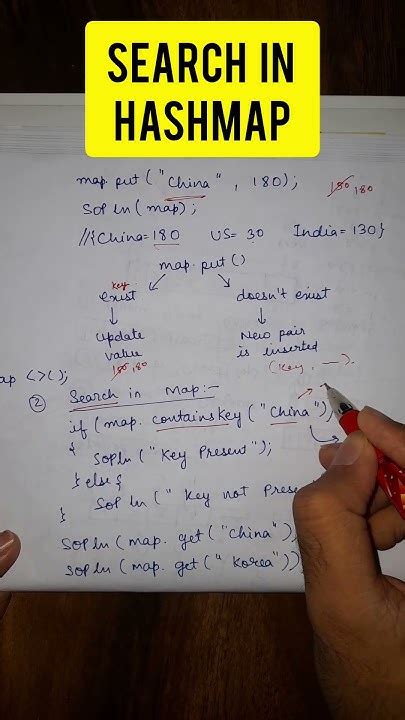 SEARCH IN
HASHMAP
map.put("China", 180);
150 180
SOPln(map);
//{China=180 US=30 India=130}
map.put()
key
exist
doesn't exist
Update
value
150 180
New pair
is inserted
(key, —).
ap <>();
② Search in Map:-
if (map. containsKey ("China"))
{ SOPln ("Key Present");
} else {
SOPln (" Key not Prese
}
SOPln (map. get ("China")
SOPln (map. get (" Korea"))